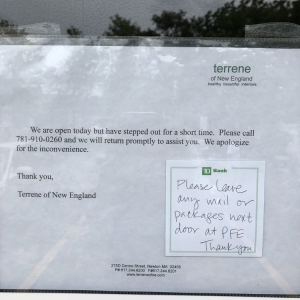 terrene
of New England
healthy beautiful interiors
We are open today but have stepped out for a short time. Please call
781-910-0260 and we will return promptly to assist you. We apologize
for the inconvenience.
Thank you,
Terrene of New England
TD Bank
Please leave
any mail or
packages next
door at PFE
Thank you
Centre Street, Newton MA
www.terrene